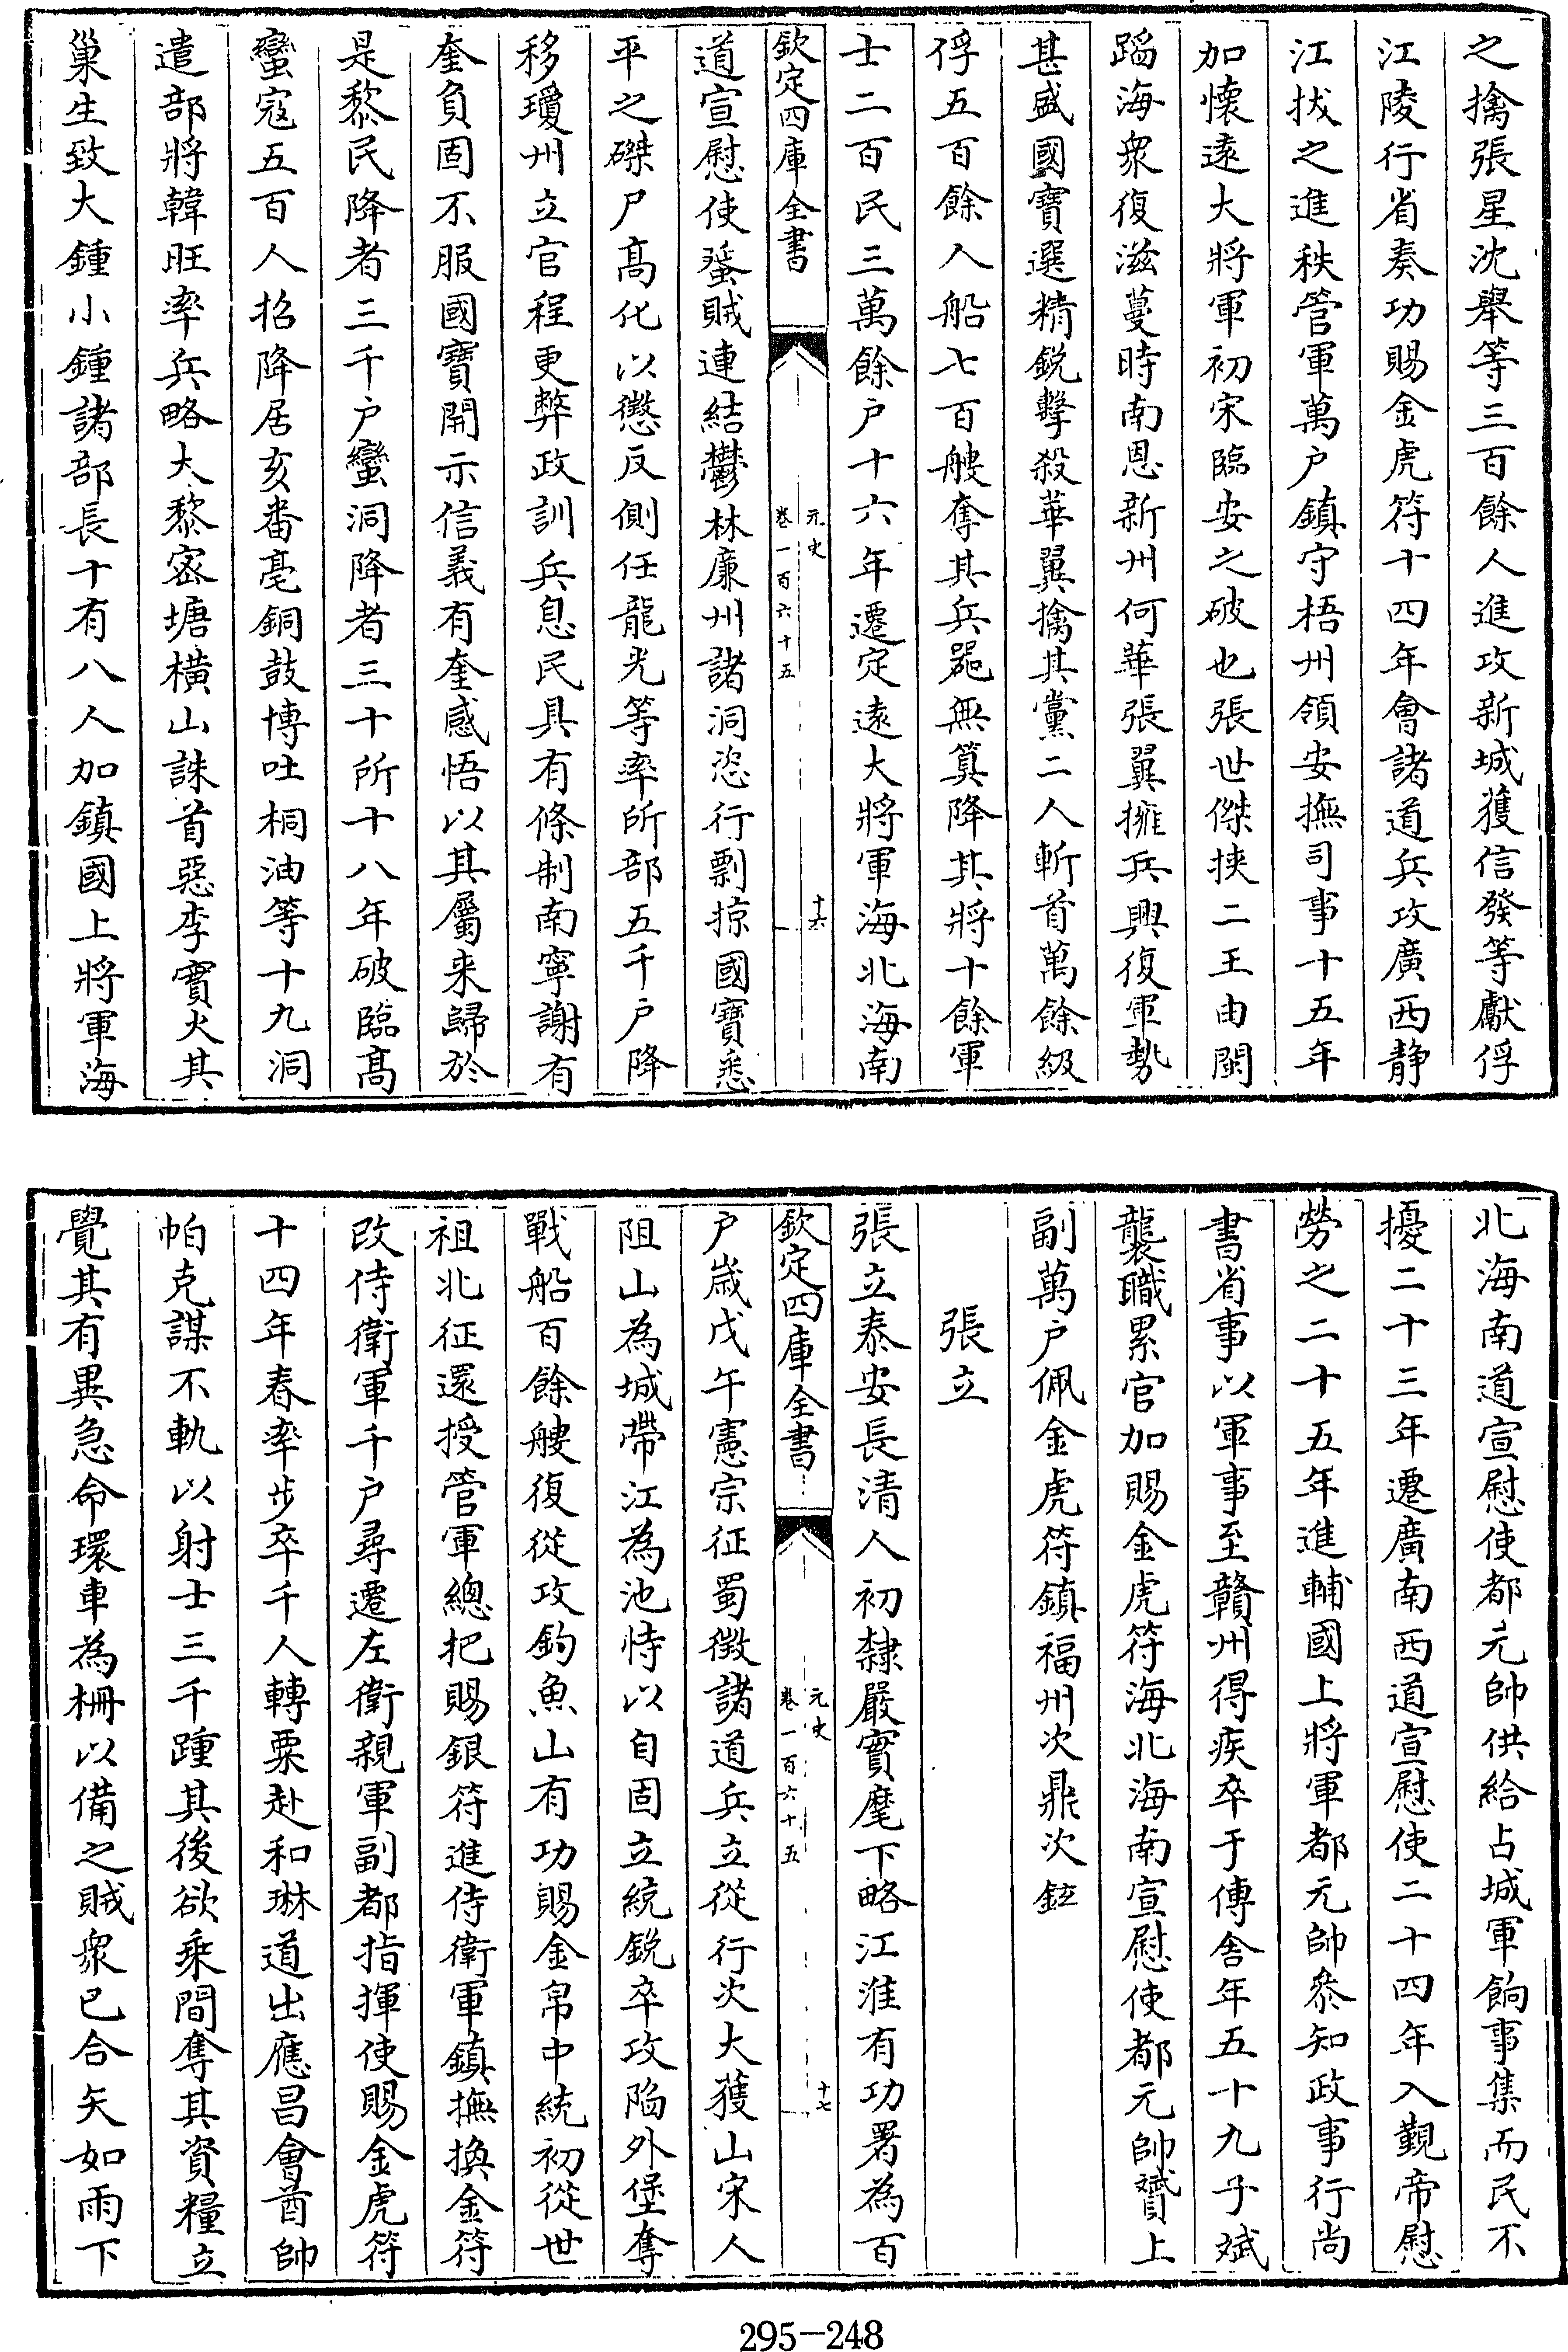 之擒張星沈舉等三百餘人進攻新城獲信發等獻俘
江陵行省奏功賜金虎符十四年會諸道兵攻廣西静
江拔之進秩管軍萬户鎮守梧州領安撫司事十五年
加懷遠大將軍初宋臨安之破也張世傑挾二王由閩
蹈海衆復滋蔓時南恩新州何華張翼擁兵興復軍勢
甚盛國寶選精鋭擊殺華翼擒其黨二人斬首萬餘級
俘五百餘人船七百艘奪其兵噐無筭降其將十餘軍
士二百民三萬餘户十六年遷定遠大將軍海北海南
欽定四庫全書
元史
卷一百六十五
十六
道宣慰使蜑賊連結鬱林廉州諸洞恣行剽掠國寶悉
平之磔尸高化以懲反側任龍光等率所部五千户降
移瓊州立官程更弊政訓兵息民具有條制南寧謝有
奎負固不服國寶開示信義有奎感悟以其屬来歸於
是黎民降者三千户蠻洞降者三十所十八年破臨高
蠻寇五百人招降居亥番亳銅鼓博吐桐油等十九洞
遣部將韓旺率兵略大黎密塘横山誅首惡李實火其
巢生致大鍾小鍾諸部長十有八人加鎮國上將軍海
北海南道宣慰使都元帥供給占城軍餉事集而民不
擾二十三年遷廣南西道宣慰使二十四年入覲帝慰
勞之二十五年進輔國上將軍都元帥叅知政事行尚
書省事以軍事至贛州得疾卒于傳舍年五十九子斌
襲職累官加賜金虎符海北海南宣慰使都元帥贇上
副萬户佩金虎符鎮福州次鼎次鉉
張立
張立泰安長清人初隸嚴實麾下略江淮有功署為百
欽定四庫全書
元史
卷一百六十五
十七
户嵗戊午憲宗征蜀徴諸道兵立從行次大獲山宋人
阻山為城帶江為池恃以自固立統鋭卒攻陷外堡奪
戰船百餘艘復從攻釣魚山有功賜金帛中統初從世
祖北征還授管軍總把賜銀符進侍衛軍鎮撫換金符
改侍衛軍千户尋遷左衛親軍副都指揮使賜金虎符
十四年春率步卒千人轉粟赴和琳道出應昌會酋帥
帕克謀不軌以射士三千踵其後欲乘間奪其資糧立
覺其有異急命環車為柵以備之賊衆已合矢如雨下
295-248